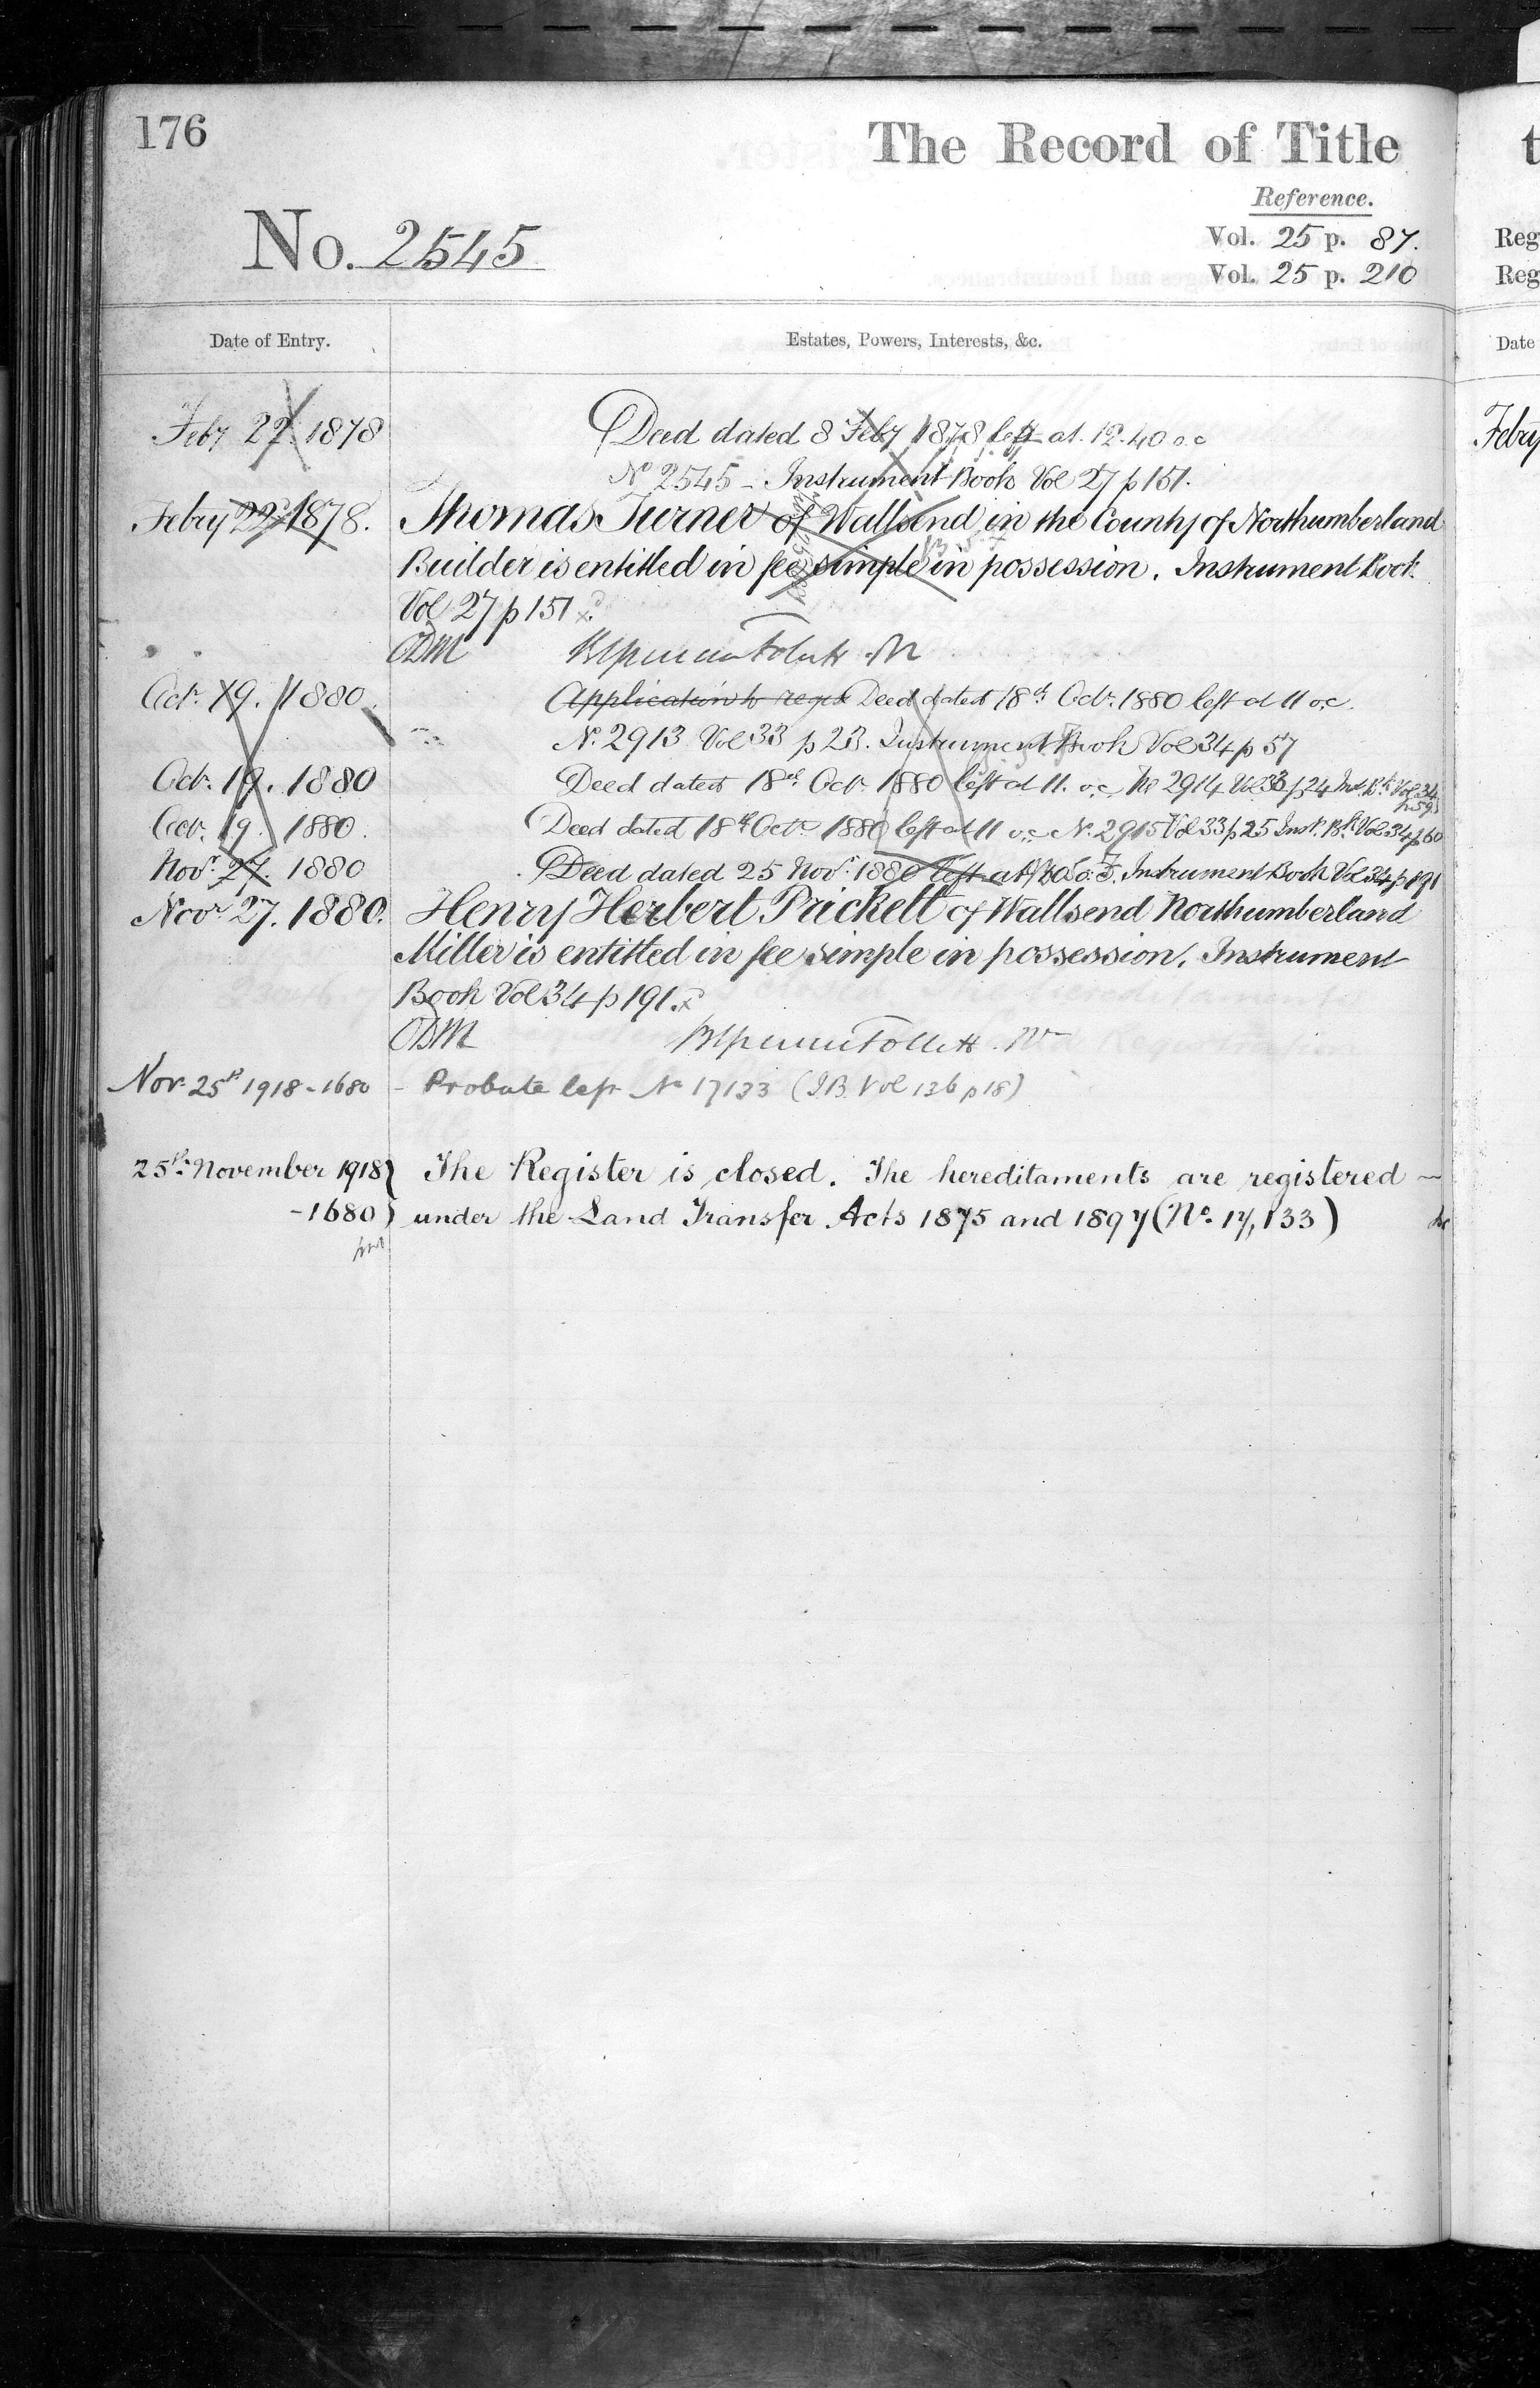 176
The Record of Title
Reference.
No. 2545
Vol. 25 p. 87.
Vol. 25 p. 210
Date of Entry.
Estates, Powers, Interests, &c.
Feby 22. 1878
Deed dated 8 Feby 1878 left at 12.40 o.c
No 2545 - Instrument Book Vol 27 p 151.
Febry 22d 1878.
Thomas Turner of Wallsend in the County of Northumberland
Builder is entitled in fee simple in possession. Instrument Book
Vol 27 p 151
Octr. 19. 1880
Application to regr Deed dated 18th Octr. 1880 left at 11 o.c.
No. 2913 Vol 33 p 23. Instrument Book Vol 34 p 57
Octr. 19. 1880
Deed dated 18th Octr. 1880 left at 11. o.c. No 2914 Vol 33 p 24 Inst. Bk Vol 34
p 59
Octr. 19. 1880.
Deed dated 18th Octr 1880 left at 11 o.c. No. 2915 Vol 33 p 25 Inst. Bk Vol 34 p 60
Novr. 27. 1880
Deed dated 25 Novr. 1880 left at Instrument Book Vol 34 p 191
Novr 27. 1880.
Henry Herbert Prickett of Wallsend Northumberland
Miller is entitled in fee simple in possession. Instrument
Book Vol 34 p 191.
Nov 25th 1918 - 1680
- Probate left No 17133 (I.B. Vol 136 p 18)
25th November 1918
The Register is closed. The hereditaments are registered
-1680
under the Land Transfer Acts 1875 and 1897 (No. 17,133)
t
Reg
Reg
Date
Febry